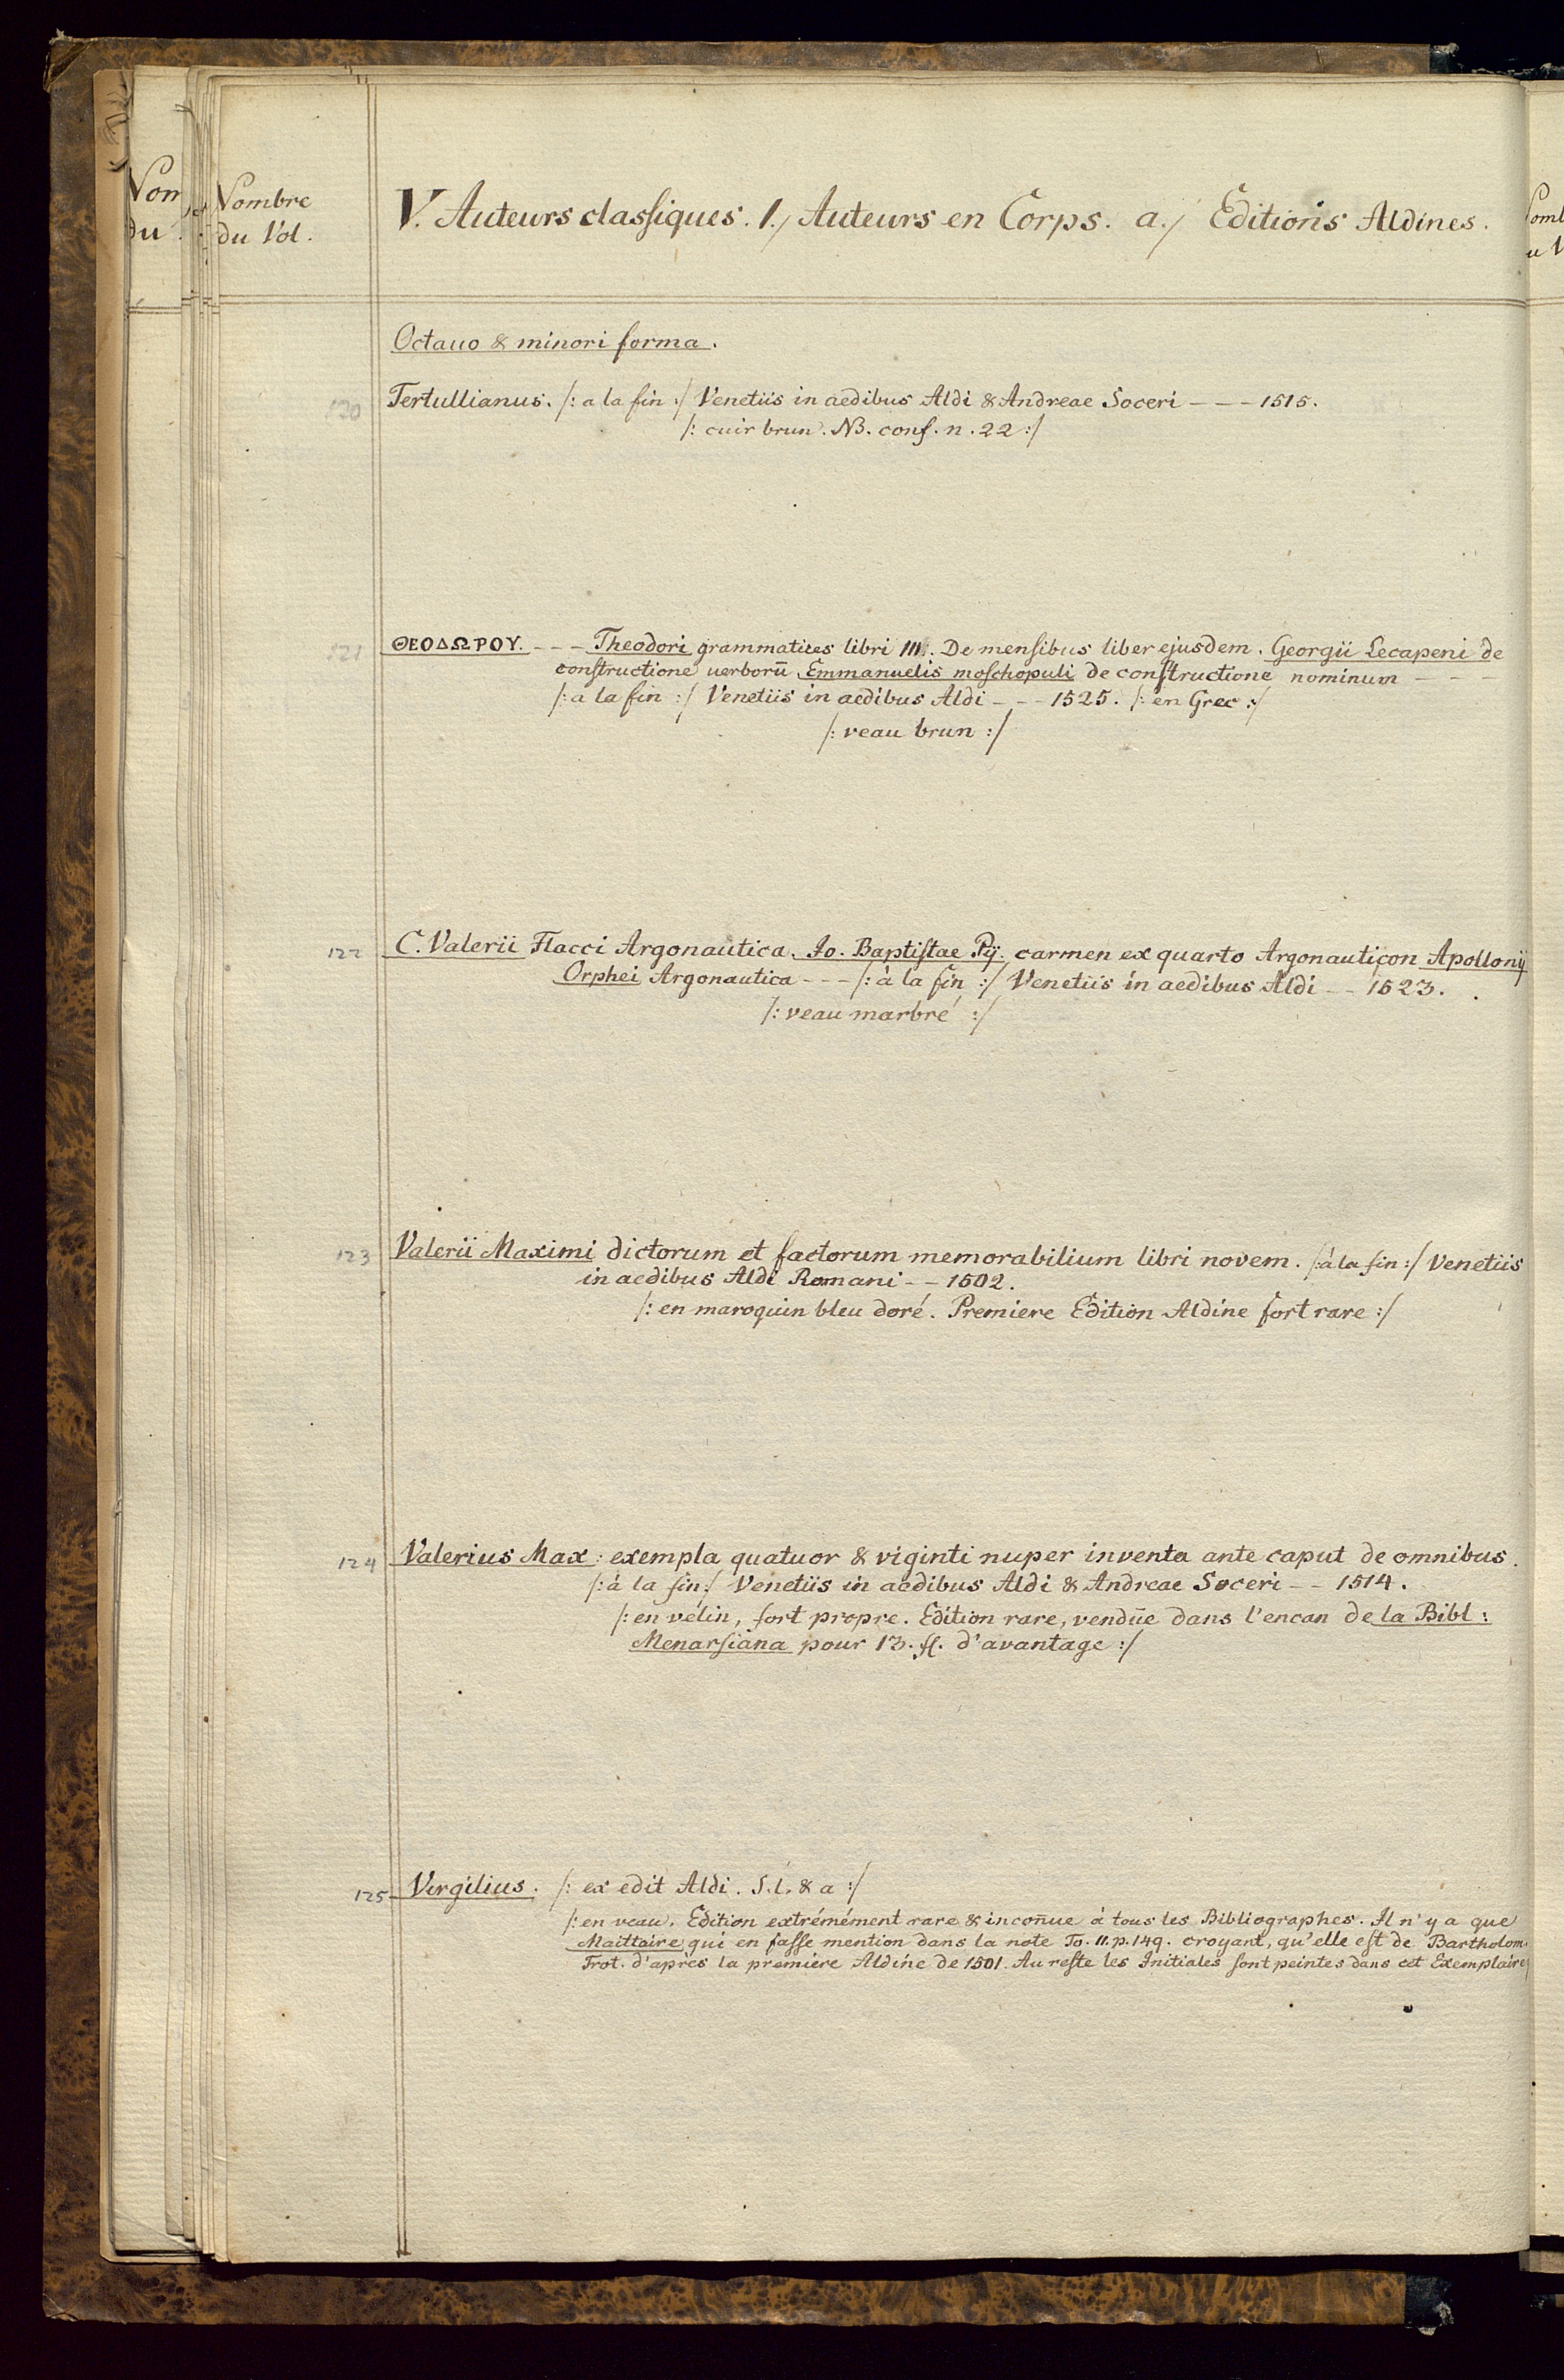 Nombre
du Vol.
V. Auteurs classiques. 1./ Auteurs en Corps. a./ Editions Aldines.
Octauo & minori forma.
120 Tertullianus. /: a la fin :/ Venetiis in aedibus Aldi & Andreae Soceri - - - 1515.
/: cuir brun. NB. conf. n. 22 :/
121 ΘΕΟΔΩΡΟΥ. - - - Theodori grammatices libri IIII. De mensibus liber ejusdem. Georgii Lecapeni de
constructione uerborū. Emmanuelis moschopuli de constructione nominum - - -
/: a la fin :/ Venetiis in aedibus Aldi - - - 1525. /: en Grec :/
/: veau brun :/
122 C. Valerii Flacci Argonautica. Jo. Baptistae Pij. carmen ex quarto Argonauticon Apollonij
Orphei Argonautica - - - /: à la fin :/ Venetiis in aedibus Aldi - - 1523.
/: veau marbré :/
123 Valerii Maximi dictorum et factorum memorabilium libri novem. /: à la fin :/ Venetiis
in aedibus Aldi Romani - - 1502.
/: en maroquin bleu doré. Premiere Edition Aldine fort rare :/
124 Valerius Max: exempla quatuor & viginti nuper inventa ante caput de omnibus.
/: à la fin :/ Venetiis in aedibus Aldi & Andreae Soceri - - 1514.
/: en vélin, fort propre. Edition rare, vendüe dans l'encan de la Bibl:
Menarsiana pour 13. fl. d'avantage :/
125 Virgilius. /: ex edit Aldi. S. l. & a :/
/: en veau. Edition extrémément rare & incoñue à tous les Bibliographes. Il n'y a que
Maittaire qui en fasse mention dans la note To. II. p. 149. croyant, qu'elle est de Bartholom.
Trot. d'apres la premiere Aldine de 1501. Au reste les Initiales sont peintes dans cet Exemplaire